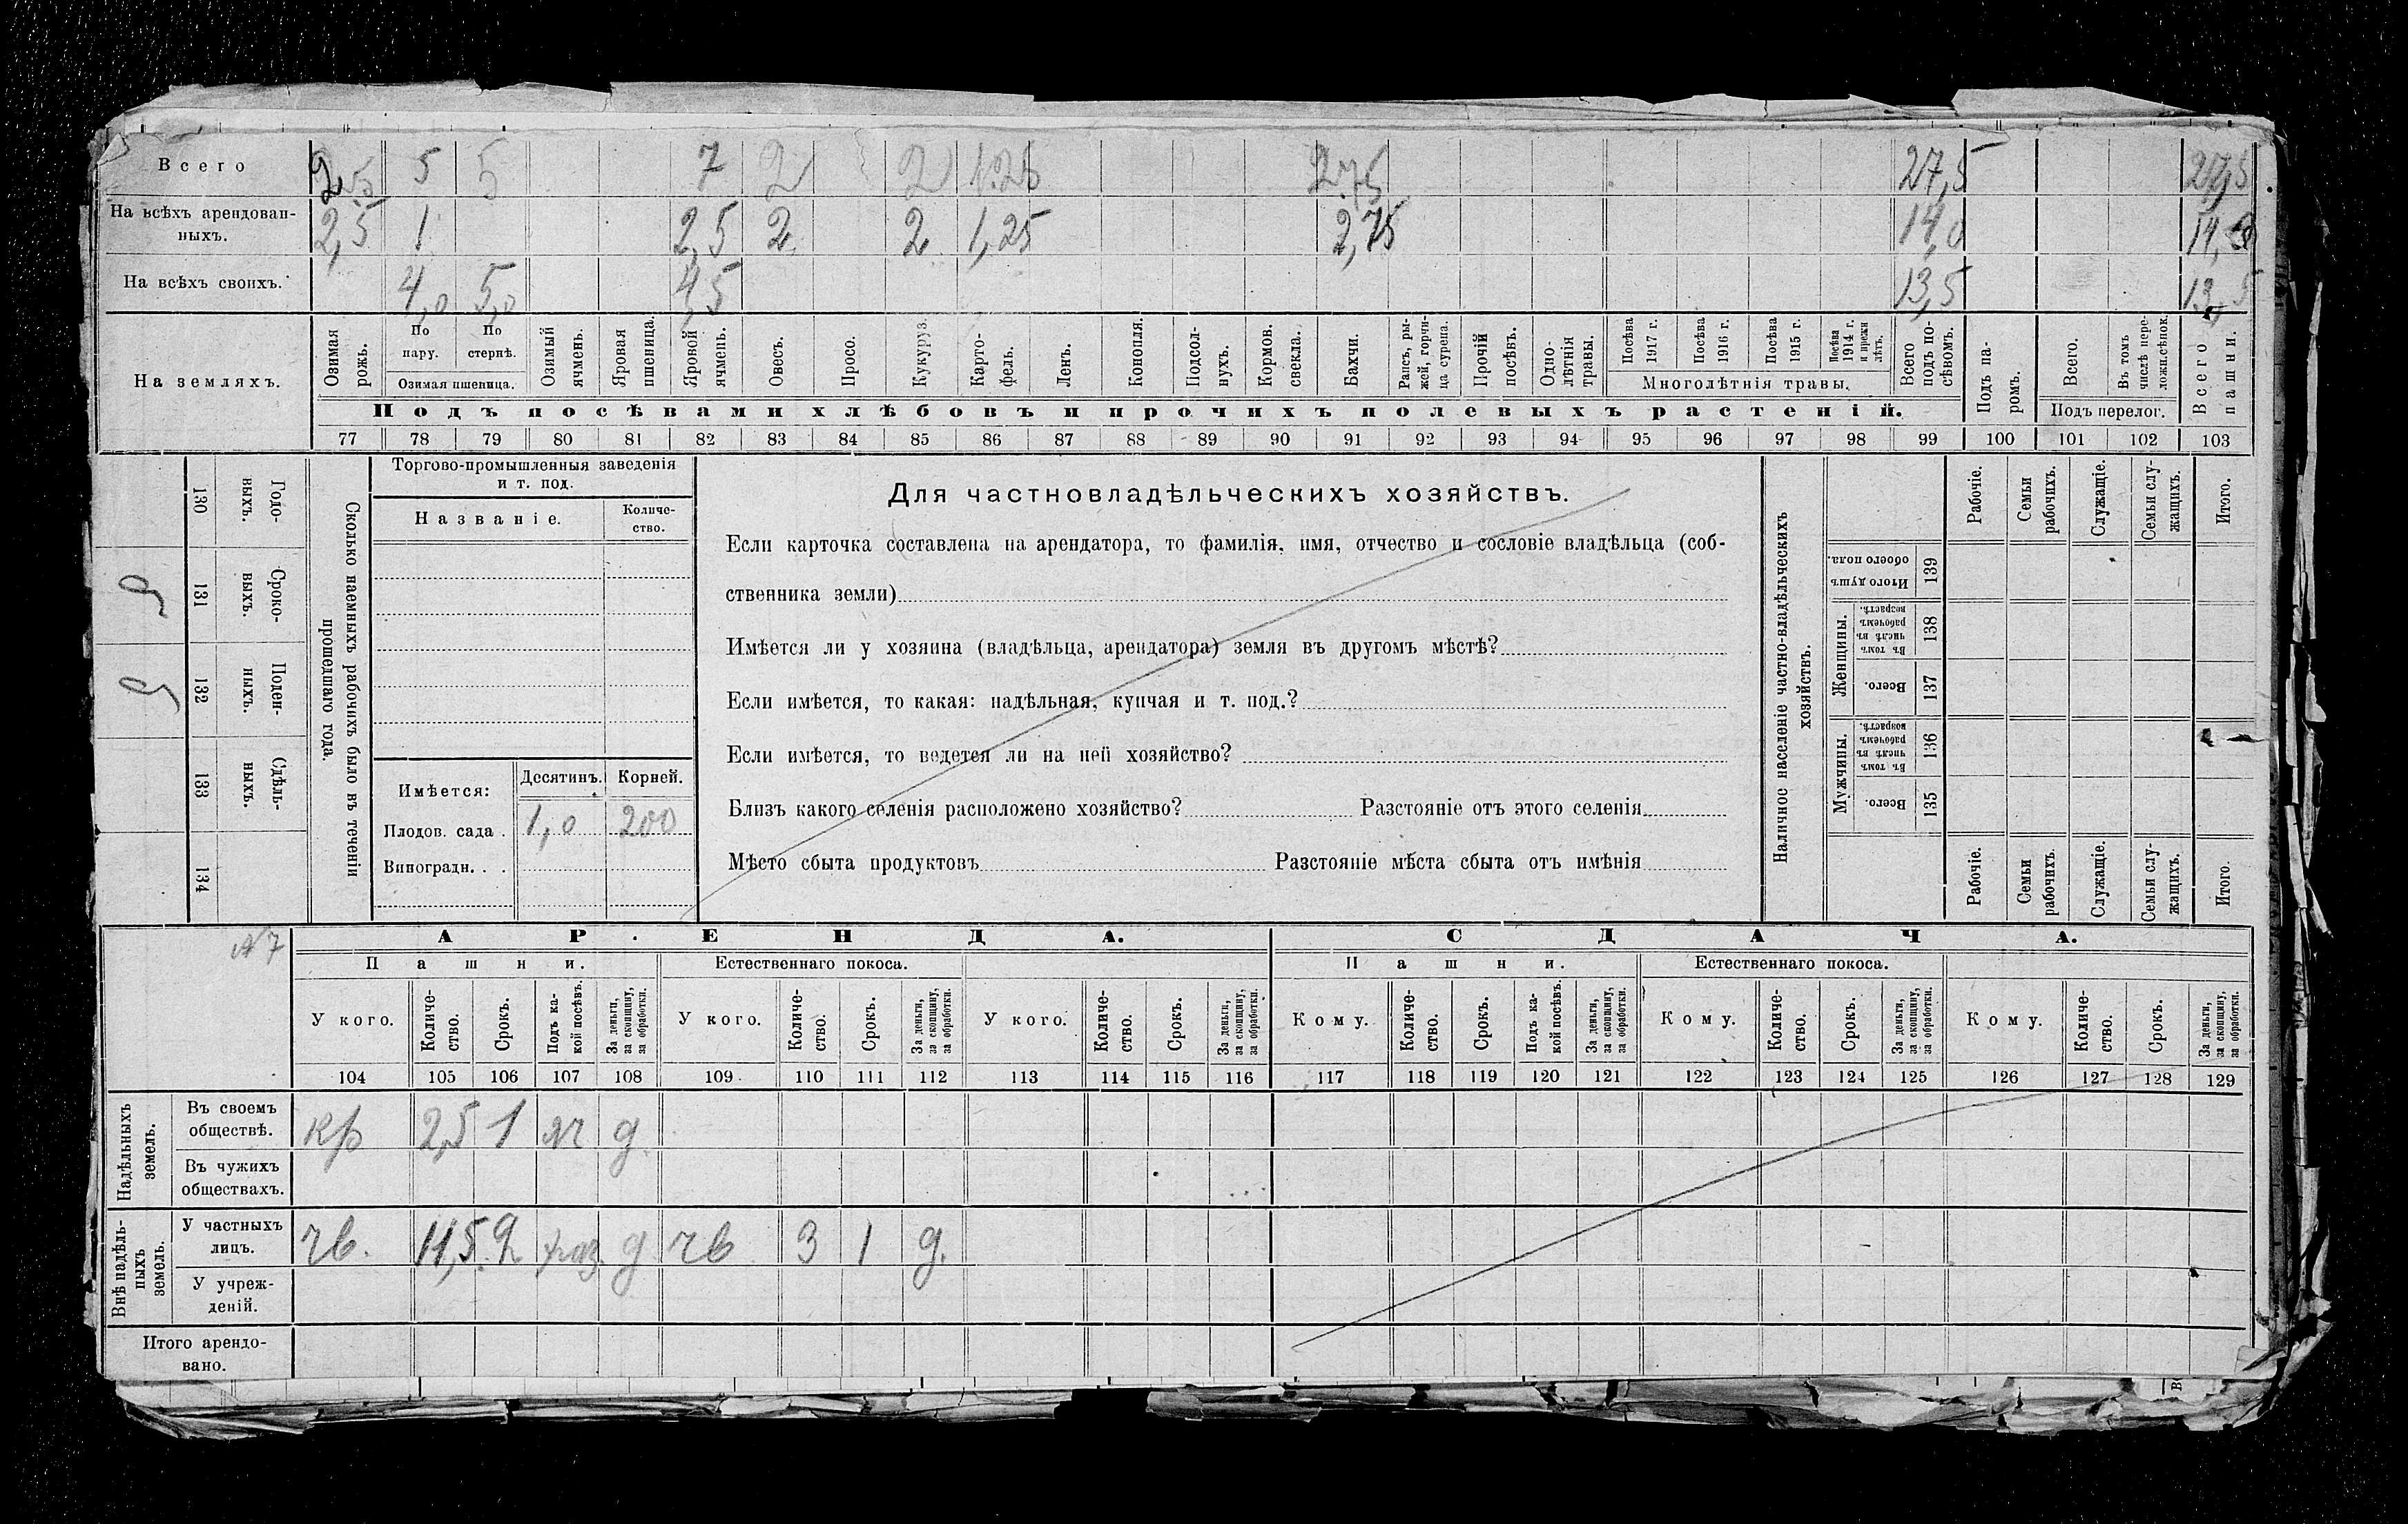 Всего 2,5 5 5 7 2 2 1.25 2.75 27,5 27,5
На всѣхъ арендован-
ныхъ. 2,5 1 2,5 2 2 1,25 2,75 14,0 14,0
На всѣхъ своихъ. 4,0 5,0 4,5 13,5 13,5
На земляхъ.
Озимая рожь.
По пару.
По стернѣ.
Озимая пшеница.
Озимый ячмень.
Яровая пшеница.
Яровой ячмень.
Овесъ.
Просо.
Кукуруз.
Карто-
фель.
Ленъ.
Конопля.
Подсол-
нухъ.
Кормов. свекла.
Бахчи.
Рапсъ, ры-
жей, горчи-
ца сурепа.
Прочій посѣвъ.
Одно-
лѣтнія травы.
Посѣва 1917 г.
Посѣва 1916 г.
Посѣва 1915 г.
Посѣва 1914 г. и прежн лѣтъ.
Многолѣтнія травы.
Всего подъ по-
сѣвомъ.
Подъ па-
ромъ.
Всего.
Въ томъ числѣ пере-
ложн.сѣнок.
Подъ перелог.
Всего пашни.
Подъ посѣвами хлѣбовъ и прочихъ полевыхъ растеній.
77 78 79 80 81 82 83 84 85 86 87 88 89 90 91 92 93 94 95 96 97 98 99 100 101 102 103
Сколько наемныхъ рабочихъ было въ теченіи
прошедшаго года.
Годо-
выхъ.
130
Сроко-
выхъ.
131
Поден-
ныхъ.
132
Сдѣль-
ныхъ.
133
134
Торгово-промышленныя заведенія
и т. под.
Названіе.
Количе-
ство.
Имѣется:
Десятинъ. Корней.
Плодов. сада . 1,0 200
Виноградн. . .
Для частновладѣльческихъ хозяйствъ.
Если карточка составлена на арендатора, то фамилія, имя, отчество и сословіе владѣльца (соб-
ственника земли)
Имѣется ли у хозяина (владѣльца, арендатора) земля въ другомъ мѣстѣ?
Если имѣется, то какая: надѣльная, купчая и т. под.?
Если имѣется, то ведется ли на ней хозяйство?
Близъ какого селенія расположено хозяйство? Разстояніе отъ этого селенія
Мѣсто сбыта продуктовъ Разстояніе мѣста сбыта отъ имѣнія
Наличное населеніе частно-владѣльческихъ
хозяйствъ.
Рабочіе.
Семьи рабочихъ.
Служащіе.
Семьи слу-
жащихъ.
Итого.
Итого душъ обоего пола.
139
Женщины.
Въ томъ числѣ въ рабочемъ возрастѣ.
138
Всего.
137
Мужчины.
Въ томъ числѣ въ рабочемъ возрастѣ.
136
Всего.
135
Рабочіе.
Семьи рабочихъ.
Служащіе.
Семьи слу-
жащихъ.
Итого
N 7
АРЕНДА. СДАЧА.
Пашни. Естественнаго покоса. Пашни. Естественнаго покоса.
У кого.
Количе-
ство.
Срокъ.
Подъ ка-
кой посѣвъ.
За деньги, за скопщину, за обработки.
У кого.
Количе-
ство.
Срокъ.
За деньги, за скопщину, за обработки.
У кого.
Количе-
ство.
Срокъ.
За деньги, за скопщину, за обработки.
Кому.
Количе-
ство.
Срокъ.
Подъ ка-
кой посѣвъ.
За деньги, за скопщину, за обработки.
Кому.
Количе-
ство.
Срокъ.
За деньги, за скопщину, за обработки.
Кому.
Количе-
ство.
Срокъ.
За деньги, за скопщину, за обработки.
104 105 106 107 108 109 110 111 112 113 114 115 116 117 118 119 120 121 122 123 124 125 126 127 128 129
Надѣльныхъ земель.
Въ своемъ
обществѣ. кр 2,5 1 яч д.
Въ чужихъ
обществахъ.
Внѣ надѣль-
ныхъ земель.
У частныхъ
лицъ. чв. 11,5 2 раз. д чв 3 1 д.
У учреж-
деній.
Итого арендо-
вано.